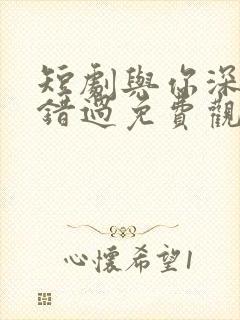 短劇與你深
錯過免費觀
心懷希望1